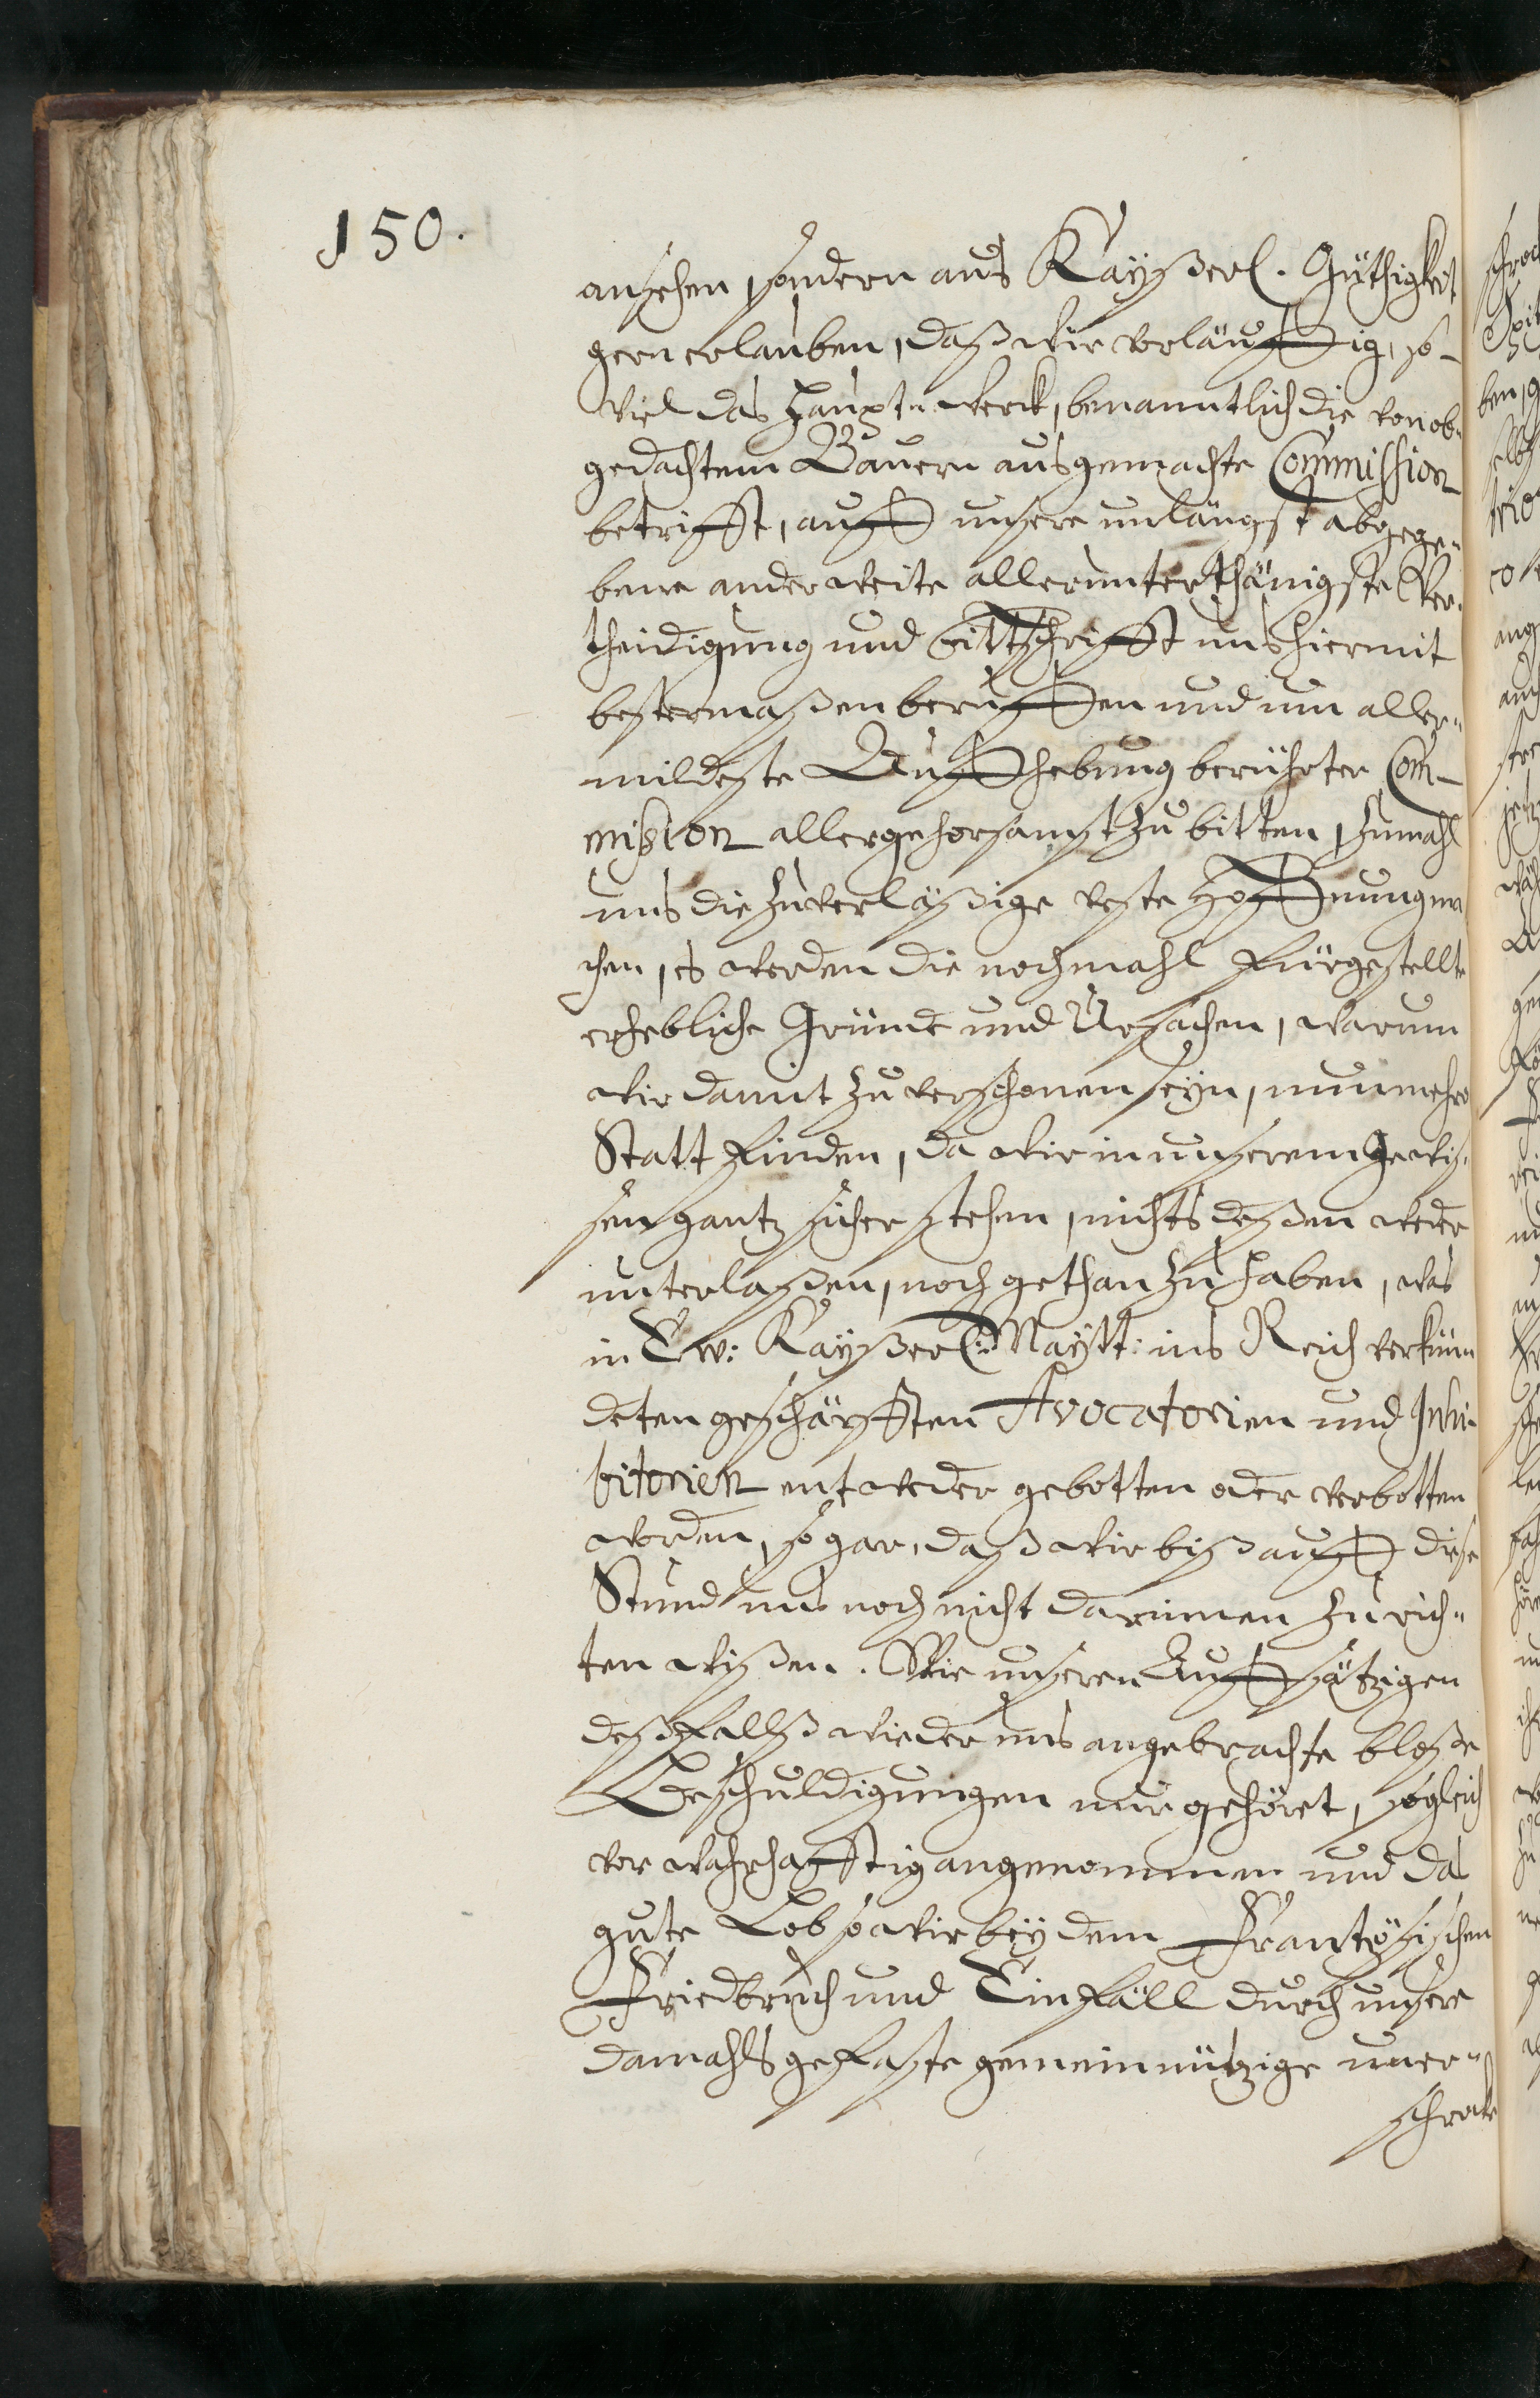 150.
ansehen, sondern aus Kaÿßerl. Güthigkeit
gern erlauben, daß wir vorläuffig, so-
viel das Haupt-werck, benanntlich die von ob-
gedachtem Bauern ausgemachte Commission
betrifft, auff unsere unlängst abgege-
bene anderweite allerunterthänigste Ver-
theidigung und bittschrifft uns hiermit
bestermaßen beruffen und um aller-
mildeste Auffhebung berührter Com-
mission allergehorsamst zu bitten, zumahl
uns die zuverläßige veste Hoffnung ma
chen, es werden die nochmahl fürgestellte
erhebliche Gründe und Ursachen, warum
wir damit zu verschonen seÿn, nunmehro
Statt finden, da wir in unserem Gewis-
sen gantz sicher stehen, nichts deßen weder
unterlaßen, noch gethan zu haben, was
in Ew: Kaÿßerl: Maÿtt: ins Reich verkün-
deten geschärfften Avocatorien und Inhi-
bitorien entweder gebotten oder verbotten
worden, so gar, daß wir biß auff diese
Stund uns noch nicht darinnen zu rich-
ten wißen. Wie unseren Auffsätzigen
deßfallß wieder uns angebrachte bloße
Beschuldigungen nur gehöret, sogleich
vor wahrhafftig angenommen und das
gute Lob so wir beÿ dem Frantzösischen
Friedbruch und Einfäll durch unsere
damahls gefaste gemeinnützige uner-
schrock